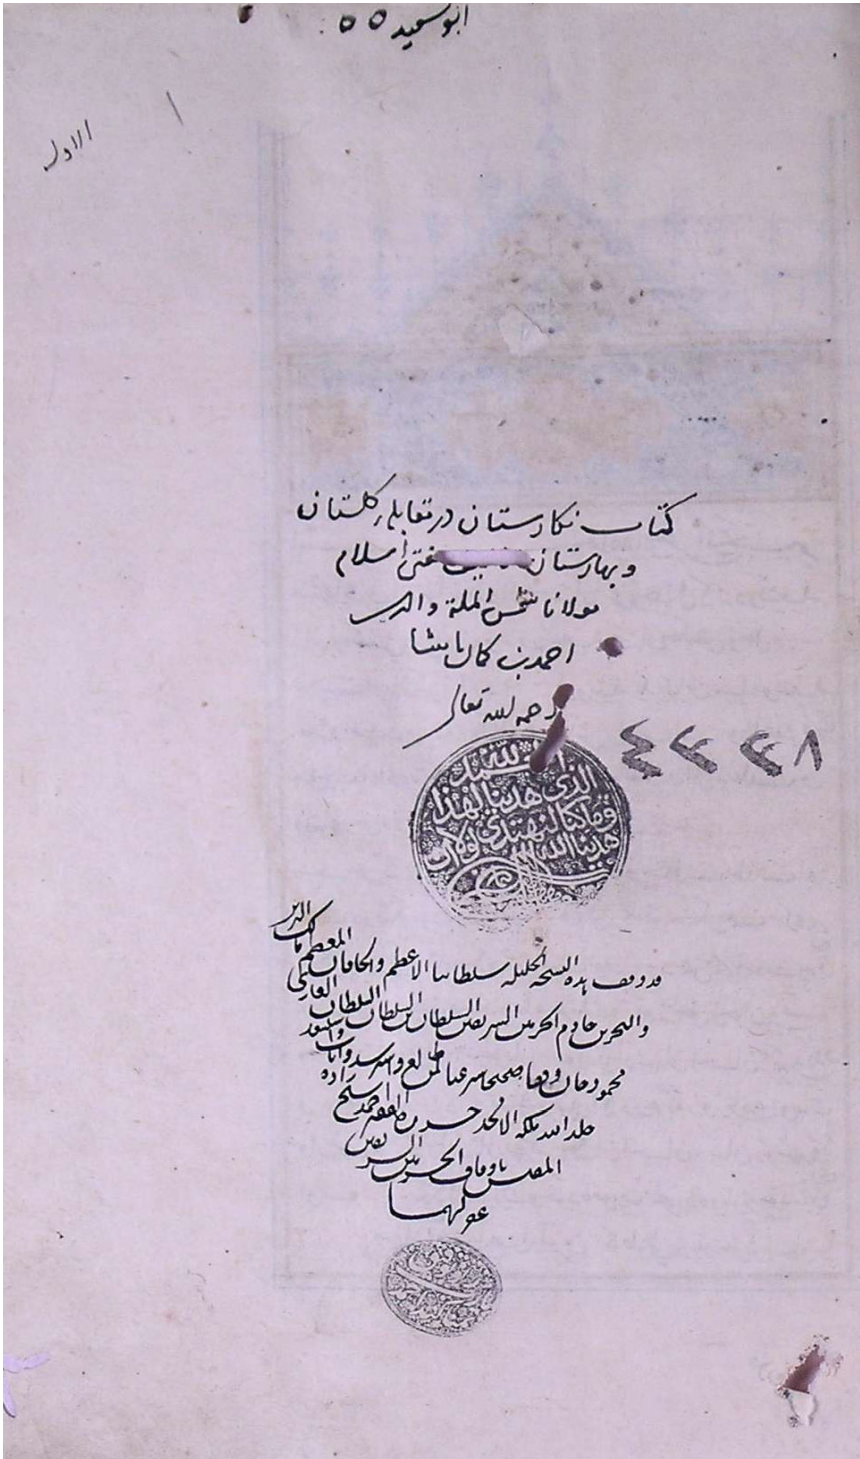 ابوسعید ٥٥
الاول
کتاب نکارستان در مقابله کلستان
و بهارستان مفتی اسلام
مولانا شمس الملة والدین
احمد بن کمال پاشا
رحمه الله تعالی
٤٢٢٨
الحمد لله
الذی هدینا لهذا
وما کنا لنهتدی لولا ان
هدینا الله
قد وقف هذه النسخة الجلیله سلطاننا الاعظم والخاقان المعظم مالک البرین
والبحرین خادم الحرمین الشریفین السلطان بن السلطان السلطان الغازی
محمود خان وقفا صحیحا شرعیا لمن طالع
خلد الله ملکه حرره الفقیر احمد شیخ زاده
المفتش باوقاف الحرمین الشریفین
غفر لهما